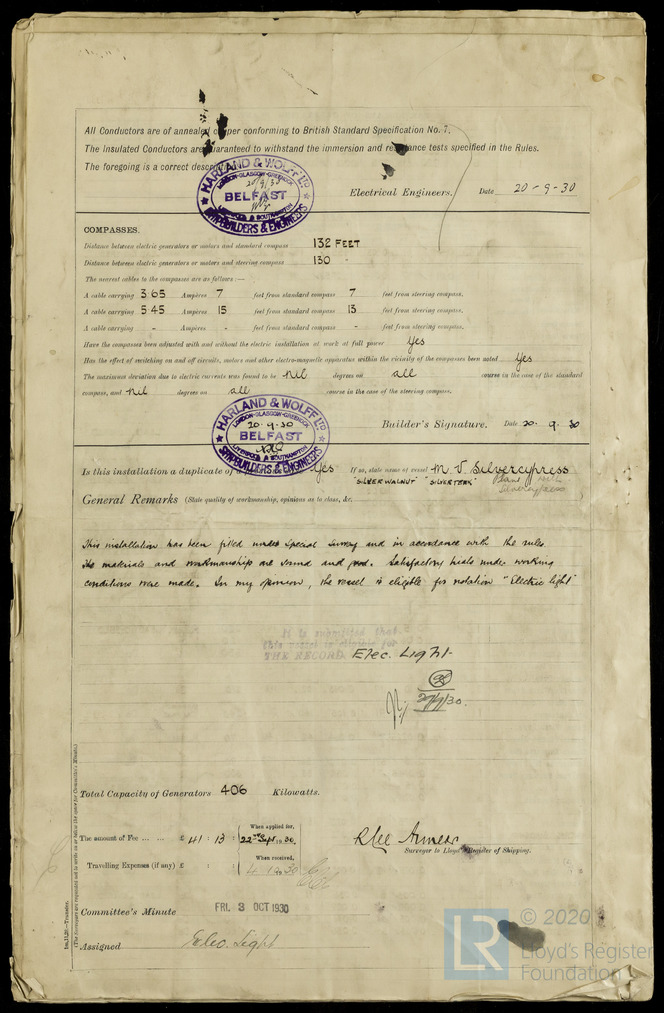 All Conductors are of annealed copper conforming to British Standard Specification No. 7.
The Insulated Conductors are guaranteed to withstand the immersion and resistance tests specified in the Rules.
The foregoing is a correct
HARLAND & WOLFF LTD
LONDON-GLASGOW-GREENOCK
20/9/30
BELFAST
LIVERPOOL & SOUTHAMPTON
SHIPBUILDERS & ENGINEERS
Electrical Engineers. Date 20-9-30
COMPASSES.
Distance between electric generators or motors and standard compass 132 FEET
Distance between electric generators or motors and steering compass 130 "
The nearest cables to the compasses are as follows:—
A cable carrying 3.65 Ampères 7 feet from standard compass 7 feet from steering compass.
A cable carrying 5.45 Ampères 15 feet from standard compass 13 feet from steering compass.
A cable carrying - Ampères - feet from standard compass - feet from steering compass.
Have the compasses been adjusted with and without the electric installation at work at full power Yes
Has the effect of switching on and off circuits, motors and other electro-magnetic apparatus within the vicinity of the compasses been noted Yes
The maximum deviation due to electric currents was found to be Nil degrees on all course in the case of the standard
compass, and Nil degrees on all course in the case of the steering compass.
HARLAND & WOLFF LTD
LONDON-GLASGOW-GREENOCK
20.9.30
BELFAST
LIVERPOOL & SOUTHAMPTON
SHIPBUILDERS & ENGINEERS
Builder's Signature. Date 20. 9. 30
Is this installation a duplicate of a Yes If so, state name of vessel M.V. Silvercypress
"SILVERWALNUT" "SILVERTEAK"
Silvercypress
General Remarks (State quality of workmanship, opinions as to class, &c.
This installation has been fitted under Special Survey and in accordance with the rules
the materials and workmanship are sound and good. Satisfactory trials under working
conditions were made. In my opinion, the vessel is eligible for notation "Electric light"
It is submitted that
this vessel is eligible for
THE RECORD. Elec. Light.
27/9/30.
Total Capacity of Generators 406 Kilowatts.
The amount of Fee ... ... £ 41 : 13 : When applied for, 22nd Sept 1930.
Travelling Expenses (if any) £ : : When received,
Surveyor to Lloyd's Register of Shipping.
Committee's Minute FRI. 3 OCT 1930
Assigned Elec. Light
1m,11,28.—Transfer.
(The Surveyors are requested not to write on or below the space for Committee's Minute.)
LR © 2020
Lloyd's Register
Foundation